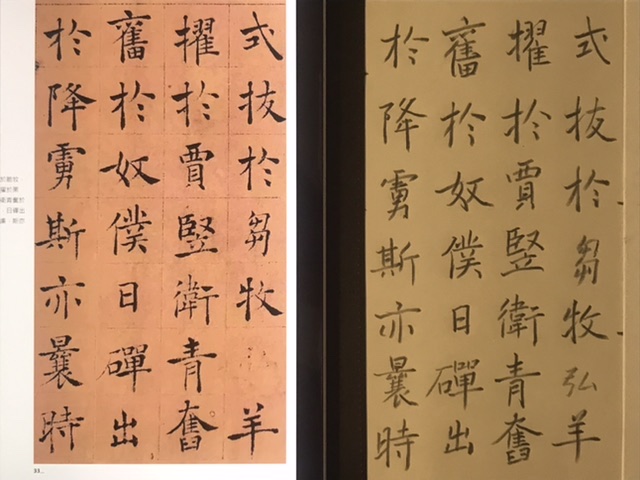 式拔於芻牧羊
擢於賈竪衛青奮
舊於奴僕日磾出
於降虜斯亦曩時
33
式拔於芻牧弘羊
擢於賈竪衛青奮
舊於奴僕日磾出
於降虜斯亦曩時